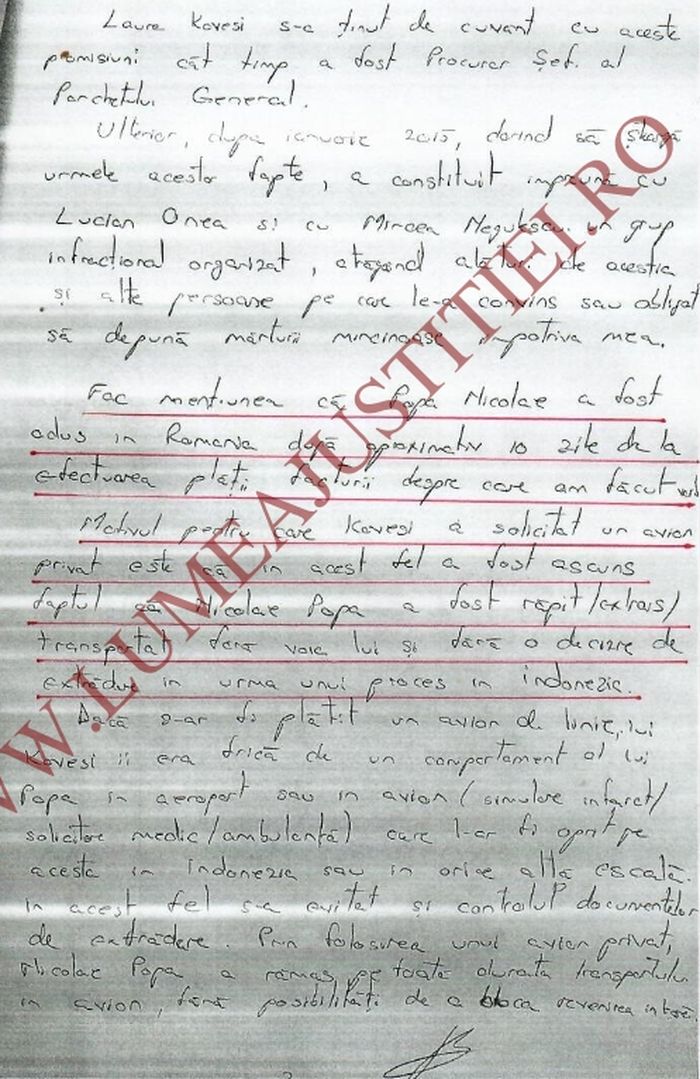 Laura Kovesi s-a ținut de cuvant cu aceste
promisiuni cât timp a fost Procuror Șef al
Parchetului General.
Ulterior, dupa ianuarie 2015, dorind să șteargă
urmele acestor fapte, a constituit impreună cu
Lucian Onea si cu Mircea Negulescu un grup
infracțional organizat, atrăgand alături de acestia
și alte persoane pe care le-a convins sau obligat
să depună mărturii mincinoase impotriva mea.
Fac mentiunea că Popa Nicolae a fost
adus in Romania după aproximativ 10 zile de la
efectuarea plății facturii despre care am făcut vorb
Motivul pentru care Kovesi a solicitat un avion
privat este că in acest fel a fost ascuns
faptul că Nicolae Popa a fost răpit/extras/
transportat fara voia lui și fără o decizie de
extrădare in urma unui proces in indonezia.
Dacă s-ar fi plătit un avion de linie, lui
Kovesi ii era frică de un comportament al lui
Popa in aeroport sau in avion (simulare infarct/
solicitare medic/ambulanță) care l-ar fi oprit pe
acesta in indonezia sau in orice altă escală.
in acest fel s-a evitat și controlul documentelor
de extrădare. Prin folosirea unui avion privat,
Nicolae Popa a rămas pe toată durata transportului
in avion, fără posibilități de a bloca revenirea in țară.
WWW.LUMEAJUSTITIEI.RO